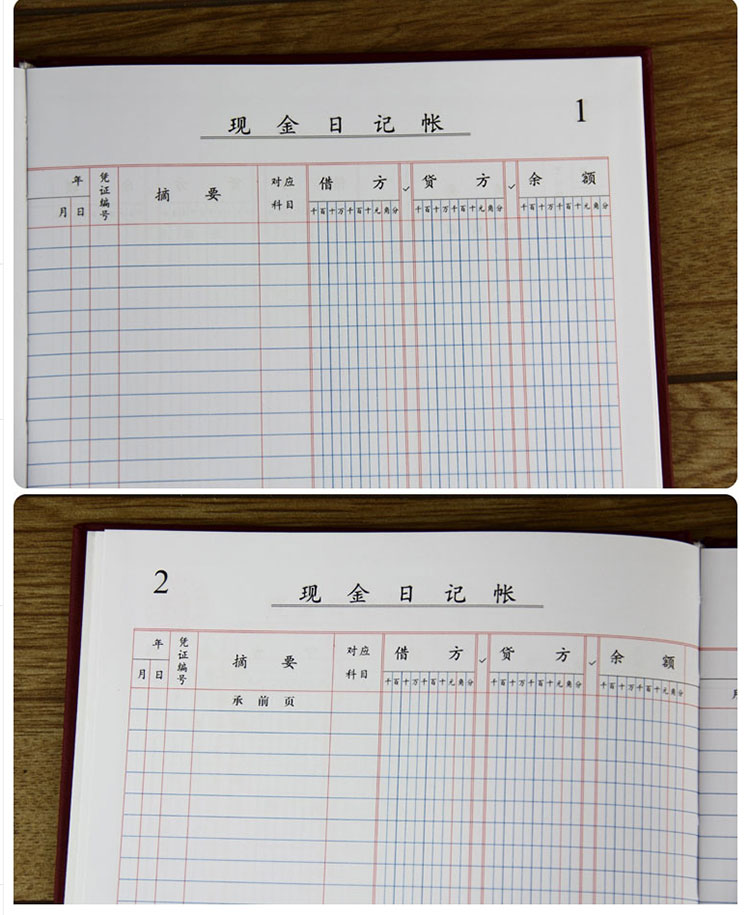 现金日记帐 1
年 凭证编号 摘要 对应科目 借方 ✓ 贷方 ✓ 余额
月 日 千百十万千百十元角分 千百十万千百十元角分 千百十万千百十元角分
2 现金日记帐
年 凭证编号 摘要 对应科目 借方 ✓ 贷方 ✓ 余额
月 日 千百十万千百十元角分 千百十万千百十元角分 千百十万千百十元角分
承前页